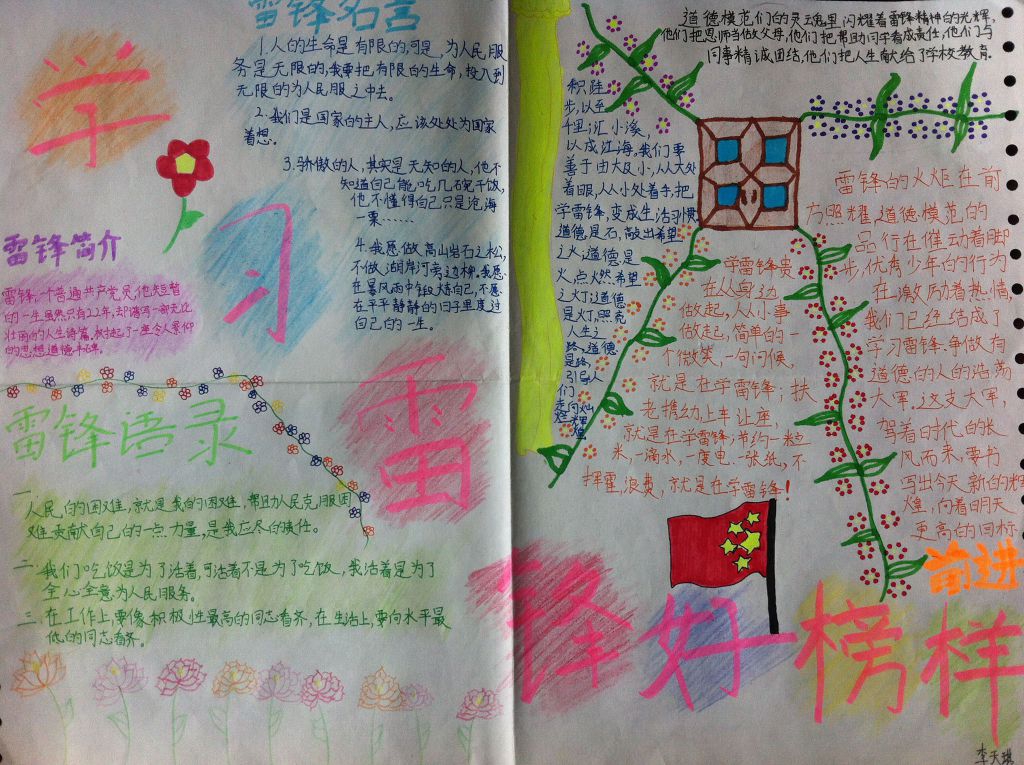 雷锋名言
1.人的生命是有限的,可是,为人民服
务是无限的,我要把有限的生命,投入到
无限的为人民服之中去。
2.我们是国家的主人,应该处处为国家
着想。
3.骄傲的人,其实是无知的人,他不
知道自己能吃几碗干饭,
他不懂得自己只是沧海
一粟……
4.我愿做高山岩石之松,
不做湖岸河旁之柳。我愿
在暴风雨中锻炼自己,不愿
在平平静静的日子里度过
自己的一生。
学
习
雷
锋好榜样
雷锋简介
雷锋,一个普通共产党员,他短暂
的一生虽然只有22年,却谱写一部无比
壮丽的人生诗篇,树起了一座令人景仰
的思想道德丰碑。
雷锋语录
一.人民的困难,就是我的困难,帮助人民克服困
难贡献自己的一点力量,是我应尽的责任。
二.我们吃饭是为了活着,可活着不是为了吃饭,我活着是为了
全心全意为人民服务。
三.在工作上,要像积极性最高的同志看齐,在生活上,要向水平最
低的同志看齐。
道德模范们的灵魂里闪耀着雷锋精神的光辉,
他们把恩师当做父母,他们把帮助同学看成责任,他们与
同事精诚团结,他们把人生献给了学校教育。
积跬
步,以至
千里,汇小溪,
以成江海。我们要
善于由大及小,从大处
着眼,从小处着手,把
学雷锋,变成生活习惯
道德是石,敲出希望
之火,道德是
火,点燃希望
之灯,道德
是灯,照亮
人生之
路,道德
是路,
引导人
们
走向灿
烂辉
煌
学雷锋贵
在从身边
做起,从小事
做起,简单的一
个微笑,一句问候,
就是在学雷锋;扶
老携幼上车让座,
就是在学雷锋;节约一粒
米,一滴水,一度电,一张纸,不
挥霍,浪费,就是在学雷锋!
雷锋的火炬在前
方照耀,道德模范的
品行在催动着脚
步,优秀少年的行为
在激励着热情,
我们已经结成了
学习雷锋、争做有
道德的人的浩荡
大军。这支大军,
驾着时代的长
风而来,要书
写出今天新的辉
煌,向着明天
更高的目标
前进
李天琪